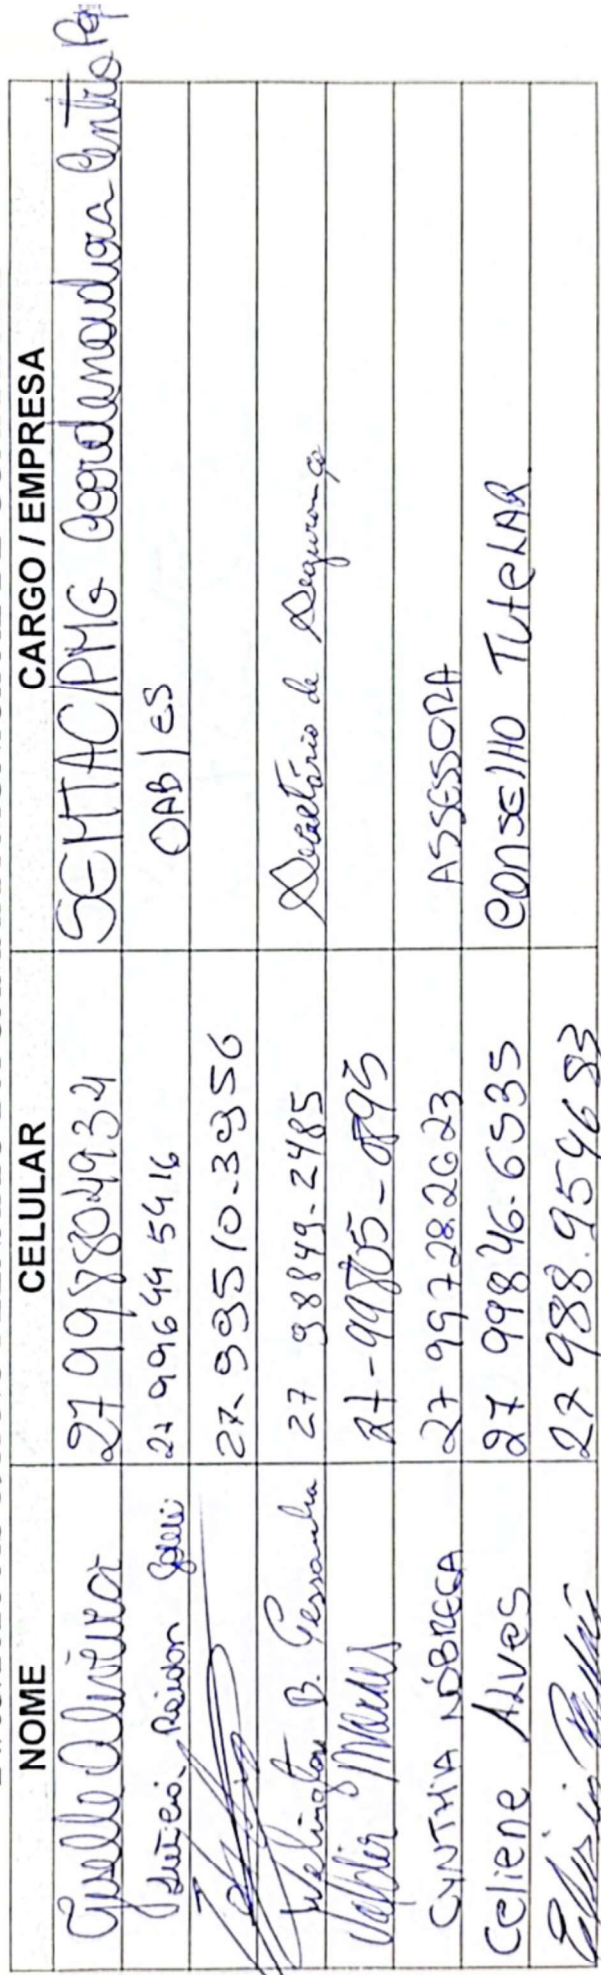 NOME CELULAR CARGO / EMPRESA
Giselle Oliveira 27 998804934 SEMTAC/PMG Coordenadora Centro Pop
27 99644 5416 OAB/ES
27 99510-3956
Welington B. Pessanha 27 98849-2485 Secretário de Segurança
Valdir Moraes 27-99805-0895
CYNTHIA NÓBREGA 27 997282623 ASSESSORA
Celiene Alves 27 99846-6535 CONSELHO TUTELAR.
27 988.959683